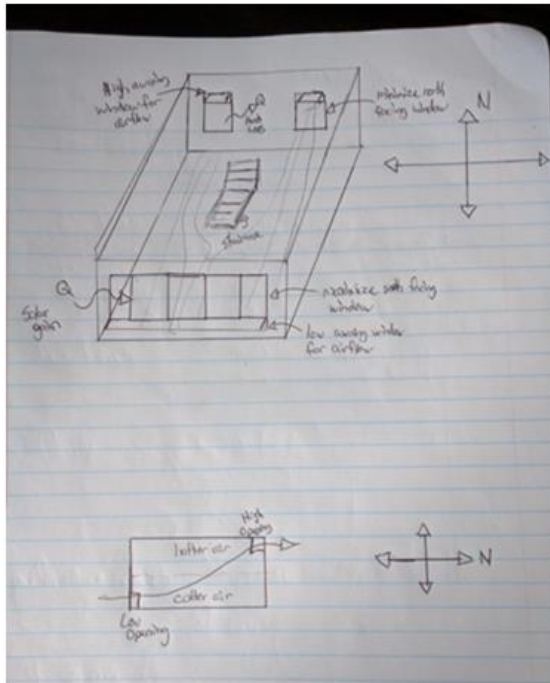 High awning
window for
airflow
Q
minimize north
facing window
N
Q
Solar
gain
maximize south facing
window
low awning window
for airflow
High
Opening
hotter air
colder air
Low
Opening
N